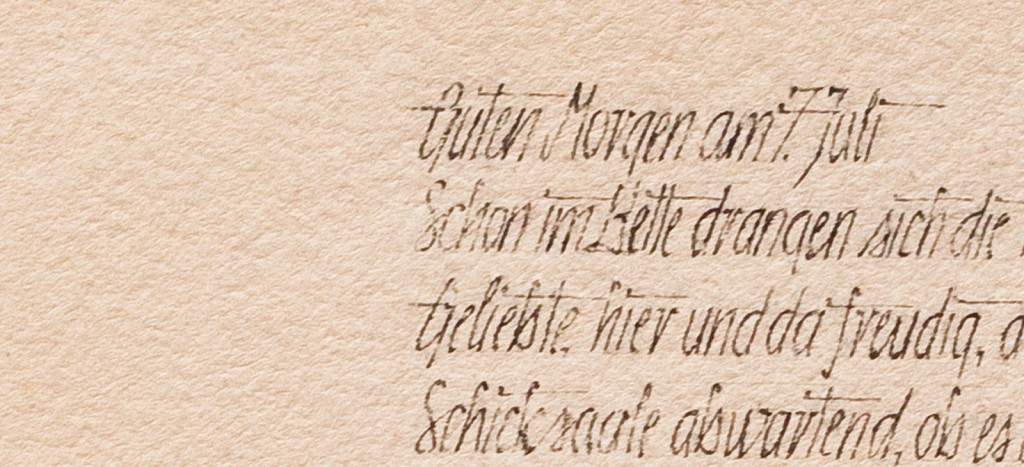 Guten Morgen am 7. Juli
Schon im Bette drangen sich die
Geliebte, hier und da freudig,
Schicksaale abwartend, ob es